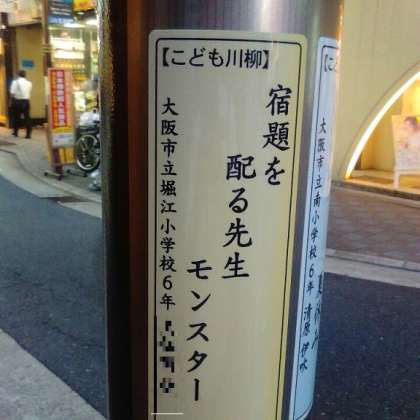 【こども川柳】
宿題を
配る先生
モンスター
大阪市立堀江小学校6年
大阪市立南小学校6年 清原 伊吹